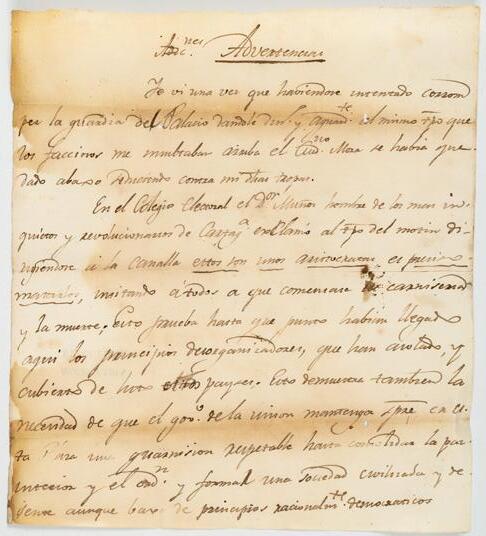 Adic.nes Advertencias
Yo vi una vez que habiendose intentado corrom
per la guardia del Palacio dandole din.o y aguard.te al mismo tpo que
los facciosos me nombraban arriba el Ciud.no Mora se habia que
dado abaxo seduciendo contra mi dhas tropas.
En el Colegio Electoral el D.or Muñoz hombre de los mas in
quietos y revolucionarios de Cartag.a exclamó al tpo del motin di
rigiendose a la canalla estos son unos aristocratas es preciso
matarlos, invitando á todos a que comenzase la carniceria
y la muerte. Esto prueba hasta que punto habian llegado
aqui los principios desorganizadores, que han asolado, y
cubierto de luto estos payses. Esto demuestra tambien la
necesidad de que el gov.o de la union mantenga spre en es
ta Plaza una guarnision respetable hasta consolidar la paz
interior y el ord.n y formar una sociedad civilizada y de
sente aunque baxo de principios racionalm.te democraticos